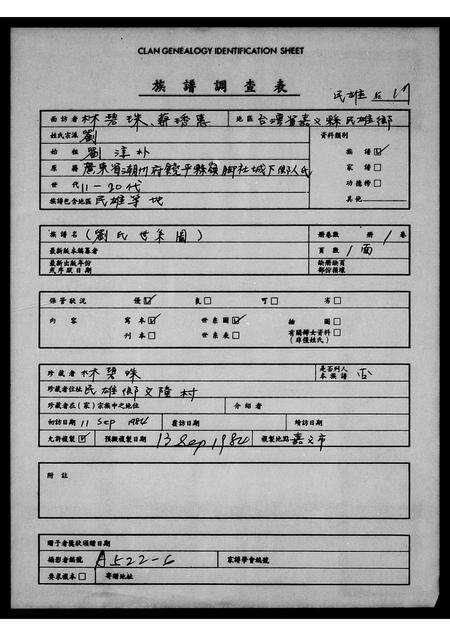 CLAN GENEALOGY IDENTIFICATION SHEET
族譜調查表
民雄
面訪者 林碧珠、蔡秀惠 地區 台灣省嘉义縣民雄鄉
姓氏宗派 劉 資料類別
始祖 劉淳朴 族譜☑
原籍 廣東省潮州府饒平縣嶺脚社城下鄉人氏 家譜□
世代 11-20代 功德榜□
族譜包含地區 民雄等地 其他
族譜名 (劉氏世系圖) 冊卷數 冊 1 卷
最新版本編纂者 頁數 1 面
最新出版年份或序跋日期 缺冊缺頁部份損壞
保管狀況 優☑ 良□ 可□ 劣□
內容 寫本☑ 世系圖☑ 插圖□
刊本□ 世系表□ 有關婦女資料□ (非僅姓氏)
珍藏者 林碧珠 是否列入本族譜 否
珍藏者住址 民雄鄉文隆村
珍藏者在(家)宗族中之地位 介紹者
初訪日期 11 Sep 1984 覆訪日期 續訪日期
允許複製☑ 預擬複製日期 13 Sep 1984 複製地點 嘉义市
附註
贈予者獎狀頒贈日期
攝影者編號 A522-6 家譜學會編號
要求複本□ 寄贈地址